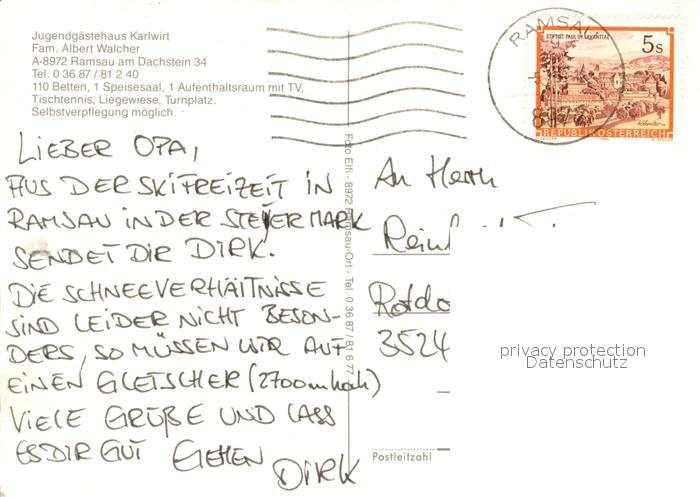 Jugendgästehaus Karlwirt
Fam. Albert Walcher
A-8972 Ramsau am Dachstein 34
Tel. 0 36 87 / 81 2 40
110 Betten, 1 Speisesaal, 1 Aufenthaltsraum mit TV,
Tischtennis, Liegewiese, Turnplatz.
Selbstverpflegung möglich.
LIEBER OPA,
AUS DER SKIFREIZEIT IN
RAMSAU IN DER STEIERMARK
SENDET DIR DIRK.
DIE SCHNEEVERHÄLTNISSE
SIND LEIDER NICHT BESON-
DERS, SO MÜSSEN WIR AUF
EINEN GLETSCHER (2700m hoch)
VIELE GRÜßE UND LASS
ES DIR GUT GEHEN
DIRK
Foto Elfi - 8972 Ramsau-Ort - Tel. 0 36 87 / 81 6 77
RAMSAU
8972
STIFT ST. PAUL IM LAVANTTAL
5 S
REPUBLIK ÖSTERREICH
An Herrn
3524
Postleitzahl
privacy protection
Datenschutz